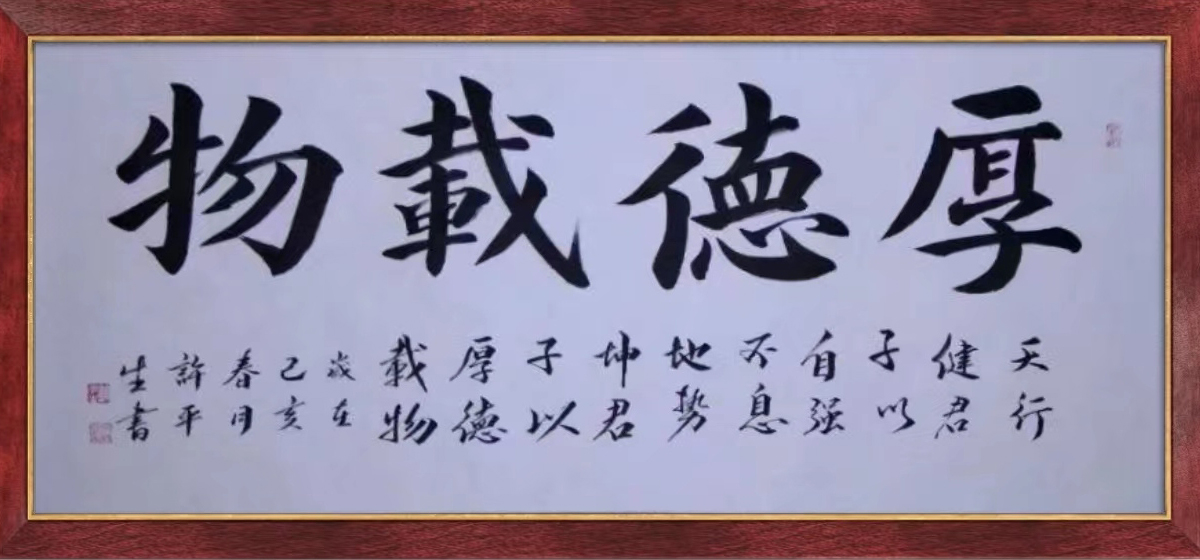 厚德載物
天行
健君
子以
自强
不息
地势
坤君
子以
厚德
載物
歲在
己亥
春月
許平
生書